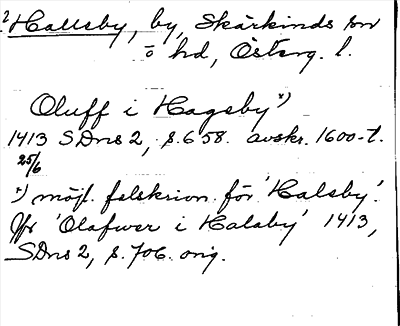 2 Hallsby, by, Skärkinds sn
o hd, Österg. l.
Oluff i Hagsby x)
1413 SDns 2, s. 658. avskr. 1600-t.
25/6
x) möjl. felskrivn. för 'Halsby'.
Jfr 'Olafwer i Halsby' 1413,
SDns 2, s. 706. orig.